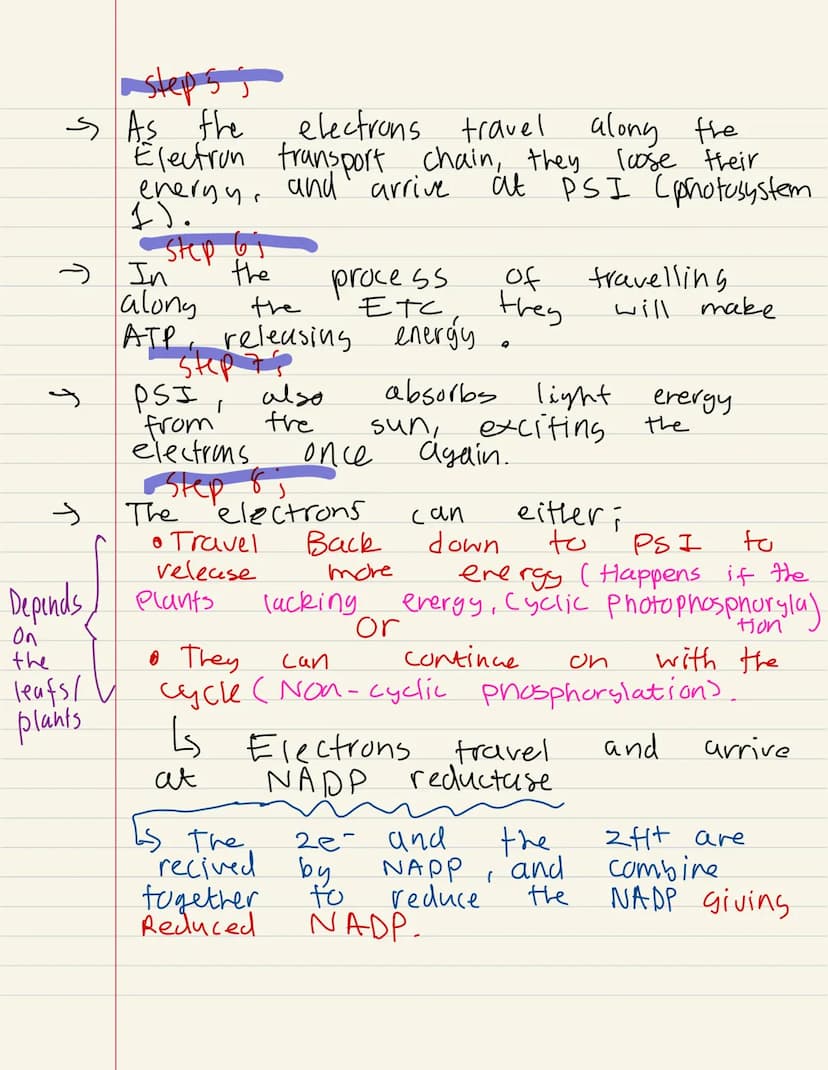 Step 5;
→ As the electrons travel along the
Electron transport chain, they loose their
energy, and arrive at PSI (photosystem
1).
Step 6;
→ In the process of travelling
along the ETC, they will make
ATP, releasing energy.
Step 7;
→ PSI, also absorbs light energy
from the sun, exciting the
electrons once again.
Step 8;
→ The electrons can either;
• Travel Back down to PSI to
release more energy (Happens if the
Plants lacking energy, Cyclic Photophosphoryla)
tion
or
• They can continue on with the
cycle (Non-cyclic phosphorylation).
Depends
on
the
leafs/
plants
↳ Electrons travel and arrive
at NADP reductase
↳ The 2e- and the 2H+ are
recived by NADP, and combine
together to reduce the NADP giving
Reduced NADP.